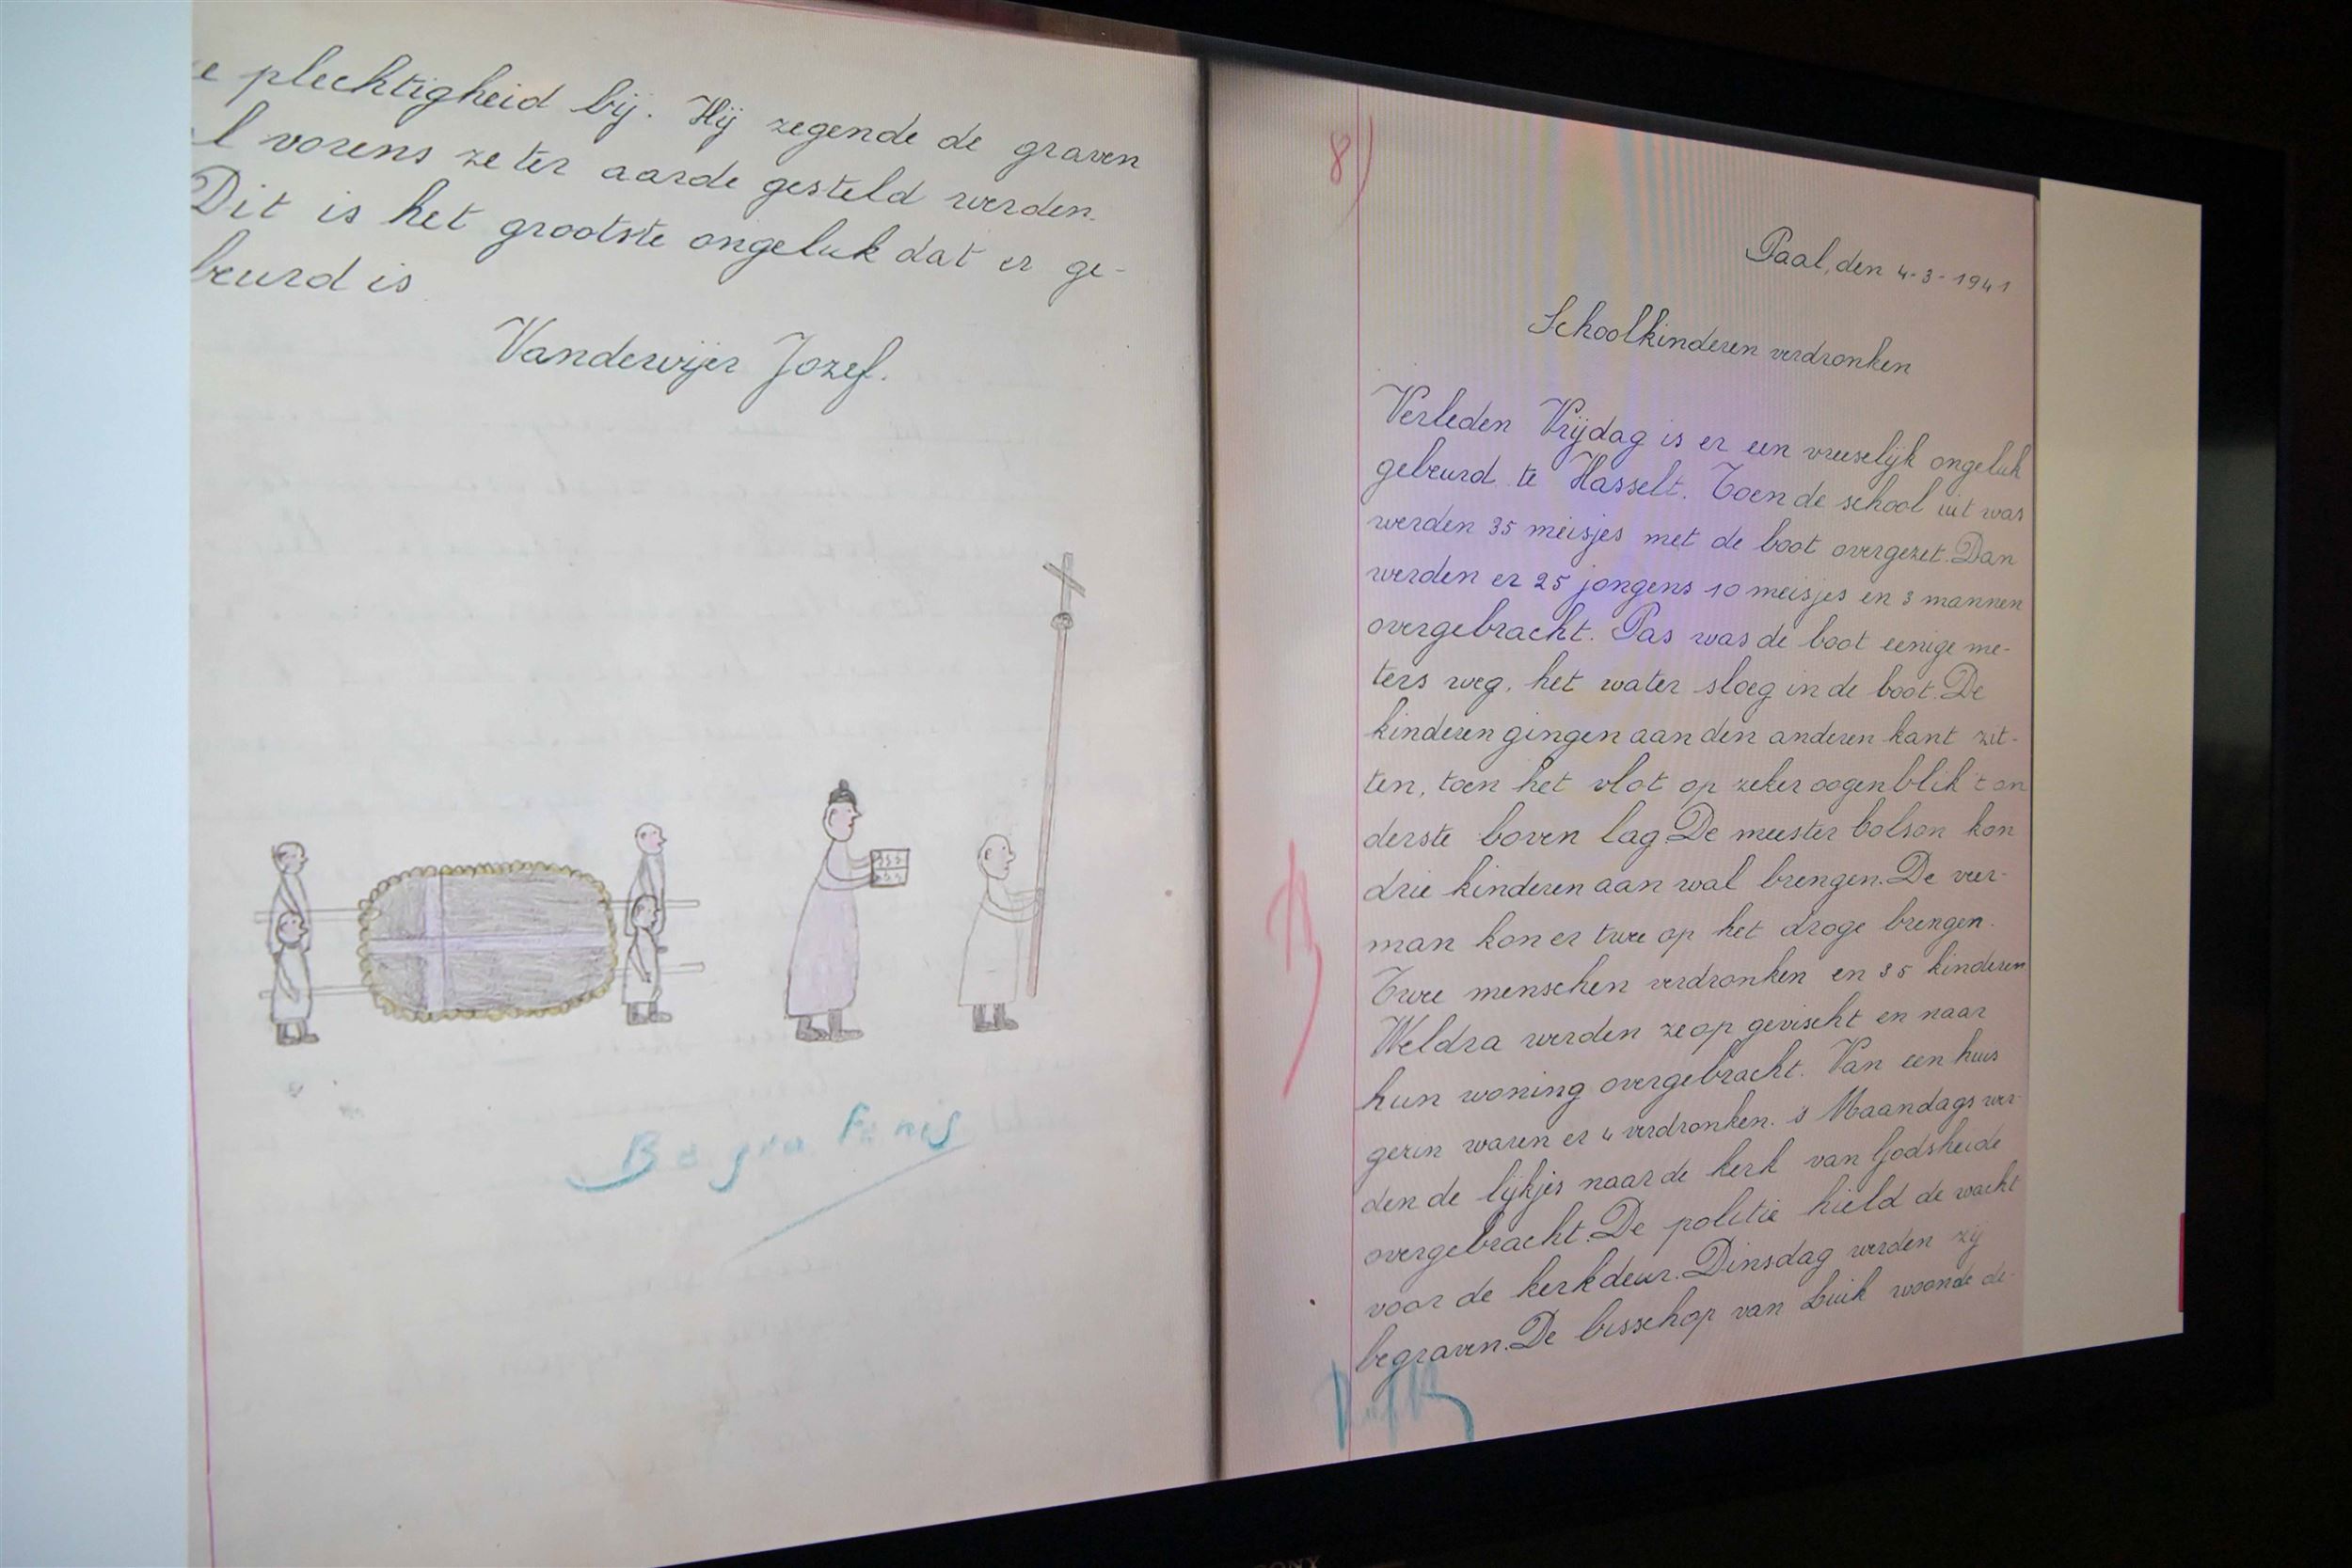 e plechtigheid bij. Hij zegende de graven
l vorens ze ter aarde gesteld werden.
Dit is het grootste ongeluk dat er ge-
beurd is
Vanderwijer Jozef.
Begrafenis
8)
Paal, den 4-3-1941
Schoolkinderen verdronken
Verleden Vrijdag is er een vreeselijk ongeluk
gebeurd te Hasselt. Toen de school uit was
werden 35 meisjes met de boot overgezet. Dan
werden er 25 jongens 10 meisjes en 3 mannen
overgebracht. Pas was de boot eenige me-
ters weg, het water sloeg in de boot. De
kinderen gingen aan den anderen kant zit-
ten, toen het vlot op zeker oogenblik 't on
derste boven lag. De meester bolson kon
drie kinderen aan wal brengen. De veer-
man kon er twee op het droge brengen.
Twee menschen verdronken en 35 kinderen
Weldra werden ze op gevischt en naar
hun woning overgebracht. Van een huis
gezin waren er 4 verdronken. 's Maandags wer-
den de lijkjes naar de kerk van Godsheide
overgebracht. De politie hield de wacht
voor de kerkdeur. Dinsdag werden zij
begraven. De bisschop van Luik woonde de-
SONY